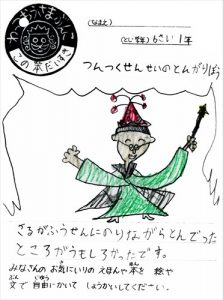 わんぱくぶんこ
この本だいすき
(なまえ)
(とし・学年) 6さい 1年
つんつくせんせいのとんがりぼう
さるがふうせんにのりながらとんでった
ところがおもしろかったです。
みなさんの お気にいりの えほんや本を 絵や
文で 自由にかいて しょうかいしてください。